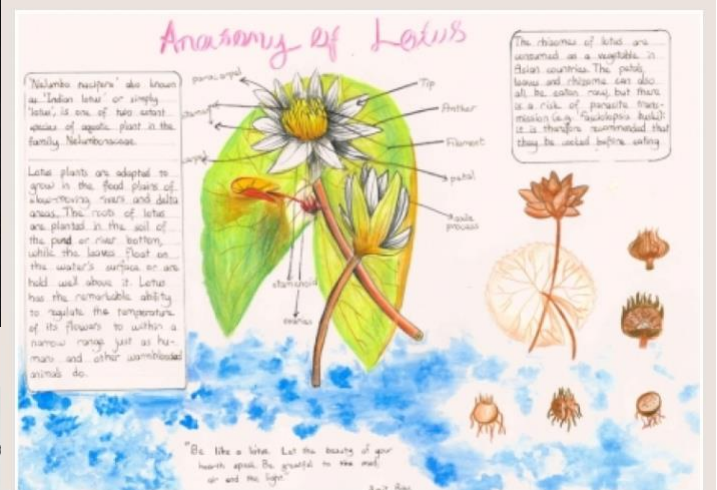 Anatomy of Lotus
'Nelumbo nucifera' also known
as 'Indian lotus' or simply
'lotus', is one of two extant
species of aquatic plant in the
family Nelumbonaceae.
Lotus plants are adapted to
grow in the flood plains of
slow-moving rivers and delta
areas. The roots of lotus
are planted in the soil of
the pond or river bottom,
while the leaves float on
the water's surface or are
held well above it. Lotus
has the remarkable ability
to regulate the temperature
of its flowers to within a
narrow range just as hu-
mans and other warmblooded
animals do.
paracarpel
Tip
Anther
Filament
petal
axile
process
staminoid
ovaries
The rhizomes of lotus are
consumed as a vegetable in
Asian countries. The petals,
leaves and rhizome can also
all be eaten raw, but there
is a risk of parasite trans-
mission (e.g. Fasciolopsis buski):
it is therefore recommended that
they be cooked before eating
"Be like a lotus. Let the beauty of your
heart speak. Be grateful to the mud,
and the light."